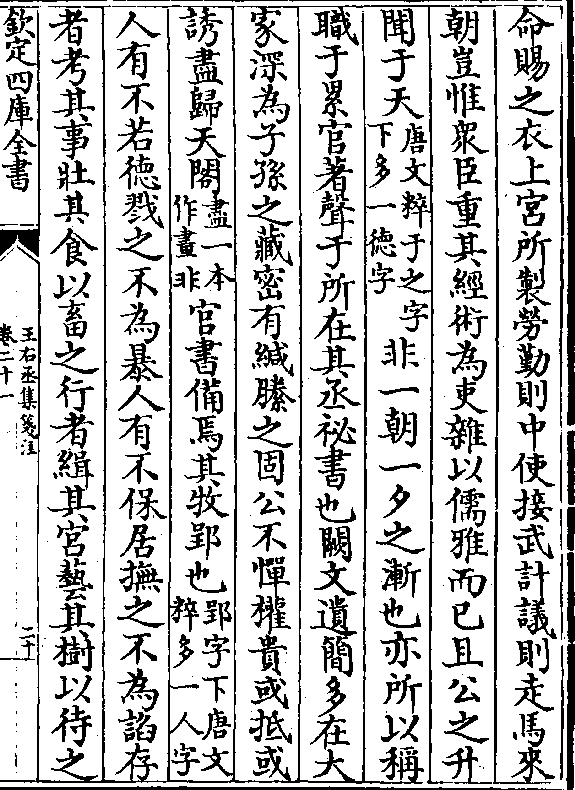 命賜之衣上宮所製勞勤則中使接武計議則走馬來
朝豈惟衆臣重其經術為吏雜以儒雅而已且公之升
聞于天唐文粹于之字下多一德字非一朝一夕之漸也亦所以稱
職于累官著聲于所在其丞祕書也闕文遺簡多在大
家深為子孫之藏密有緘縢之固公不憚權貴或抵或
誘盡歸天閣盡一本作畫非官書備焉其牧郢也郢字下唐文粹多一人字
人有不若德戮之不為暴人有不保居撫之不為謟存
者考其事壯其食以畜之行者緝其宮藝其樹以待之
欽定四庫全書
王右丞集箋注
卷二十一
二十